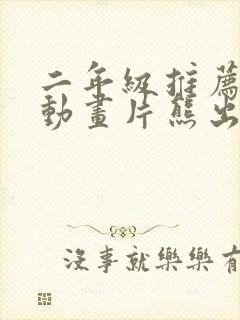 二年級推薦
動畫片熊出
沒事就樂樂有